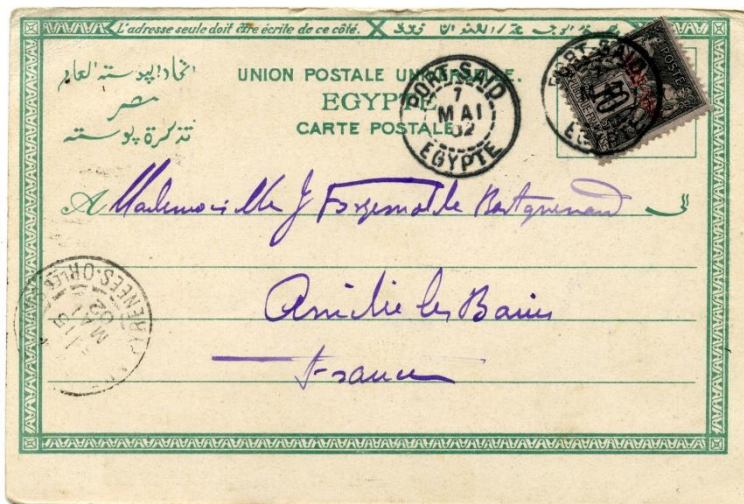 L'adresse seule doit être écrite de ce côté.
اتحاد البوسته العام
مصر
تذكرة بوسته
UNION POSTALE UNIVERSELLE.
EGYPTE
CARTE POSTALE
PORT-SAID
7
MAI
02
EGYPTE
PORT-SAID
7
MAI
EGYPTE
POSTE
10
A Mademoiselle J
Amélie les Bains
France
MAI
02
PYRÉNÉES-ORLES